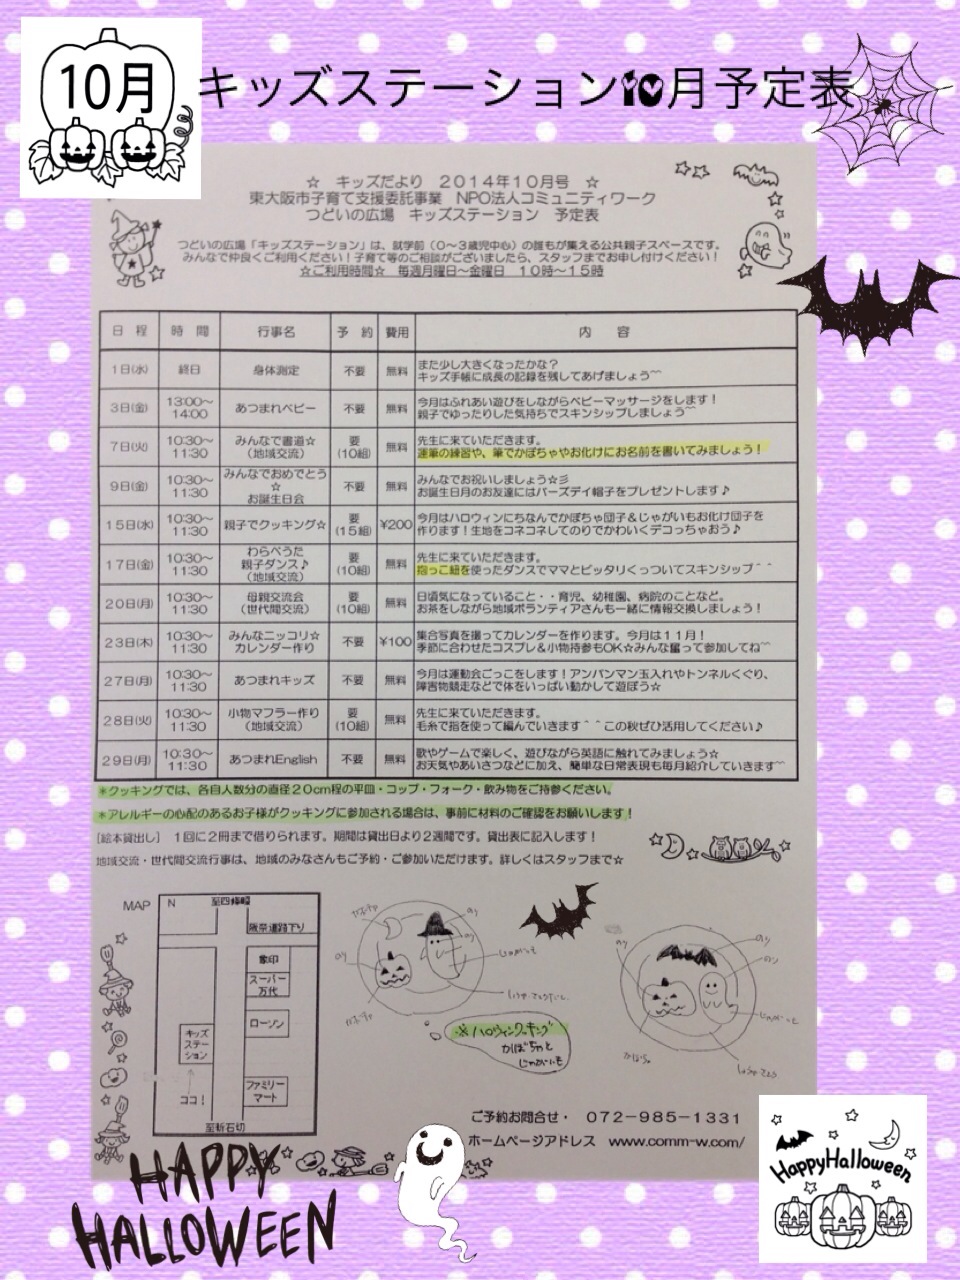 10月
キッズステーション10月予定表
☆ キッズだより 2014年10月号 ☆
東大阪市子育て支援委託事業 NPO法人コミュニティワーク
つどいの広場 キッズステーション 予定表
つどいの広場「キッズステーション」は、就学前（0〜3歳児中心）の誰もが集える公共親子スペースです。
みんなで仲良くご利用ください！子育て等のご相談がございましたら、スタッフまでお申し付けください！
☆ご利用時間☆ 毎週月曜日〜金曜日 10時〜15時
日 程 時 間 行事名 予 約 費用 内 容
1日(水) 終日 身体測定 不要 無料 また少し大きくなったかな？
キッズ手帳に成長の記録を残してあげましょう^^
3日(金) 13:00〜14:00 あつまれベビー 不要 無料 今月はふれあい遊びをしながらベビーマッサージをします！
親子でゆったりした気持ちでスキンシップしましょう^^
7日(火) 10:30〜11:30 みんなで書道☆（地域交流） 要(10組) 無料 先生に来ていただきます。
運筆の練習や、筆でかぼちゃやお化けにお名前を書いてみましょう！
9日(金) 10:30〜11:30 みんなでおめでとう☆お誕生日会 不要 無料 みんなでお祝いしましょう☆彡
お誕生日月のお友達にはバーズデイ帽子をプレゼントします♪
15日(水) 10:30〜11:30 親子でクッキング☆ 要(15組) ¥200 今月はハロウィンにちなんでかぼちゃ団子＆じゃがいもお化け団子を
作ります！生地をコネコネしてのりでかわいくデコっちゃおう♪
17日(金) 10:30〜11:30 わらべうた親子ダンス♪（地域交流） 要(10組) 無料 先生に来ていただきます。
抱っこ紐を使ったダンスでママとピッタリくっついてスキンシップ＾＾
20日(月) 10:30〜11:30 母親交流会（世代間交流） 要(10組) 無料 日頃気になっていること・・育児、幼稚園、病院のことなど。
お茶をしながら地域ボランティアさんも一緒に情報交換しましょう！
23日(木) 10:30〜11:30 みんなニッコリ☆カレンダー作り 不要 ¥100 集合写真を撮ってカレンダーを作ります。今月は11月！
季節に合わせたコスプレ＆小物持参もOK☆みんな奮って参加してね^^
27日(月) 10:30〜11:30 あつまれキッズ 不要 無料 今月は運動会ごっこをします！アンパンマン玉入れやトンネルくぐり、
障害物競走などで体をいっぱい動かして遊ぼう☆
28日(火) 10:30〜11:30 小物マフラー作り（地域交流） 要(10組) 無料 先生に来ていただきます。
毛糸で指を使って編んでいきます＾＾この秋ぜひ活用してください♪
29日(月) 10:30〜11:30 あつまれEnglish 不要 無料 歌やゲームで楽しく、遊びながら英語に触れてみましょう☆
お天気やあいさつなどに加え、簡単な日常表現も毎月紹介していきます^^
＊クッキングでは、各自人数分の直径20cm程の平皿・コップ・フォーク・飲み物をご持参ください。
＊アレルギーの心配のあるお子様がクッキングに参加される場合は、事前に材料のご確認をお願いします！
[絵本貸出し] 1回に2冊まで借りられます。期間は貸出日より2週間です。貸出表に記入します！
地域交流・世代間交流行事は、地域のみなさんもご予約・ご参加いただけます。詳しくはスタッフまで☆
MAP
N
至四條畷
阪奈道路下り
象印
スーパー万代
ローソン
キッズステーション
ココ！
ファミリーマート
至新石切
かぼちゃ
のり
のり
のり
じゃがいも
かぼちゃ
※ハロウィンクッキング
かぼちゃと
じゃがいも
のり
のり
のり
じゃがいも
かぼちゃ
ご予約お問合せ・ 072-985-1331
ホームページアドレス www.comm-w.com/
HAPPY
HALLOWEEN
HappyHalloween